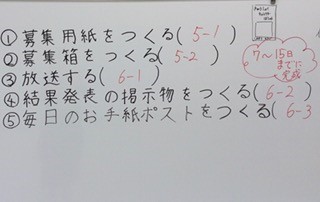 ①募集用紙をつくる(5-1)
②募集箱をつくる(5-2)
③放送する(6-1)
④結果発表の掲示物をつくる(6-2)
⑤毎日のお手紙ポストをつくる(6-3
7〜15日
までに
完成